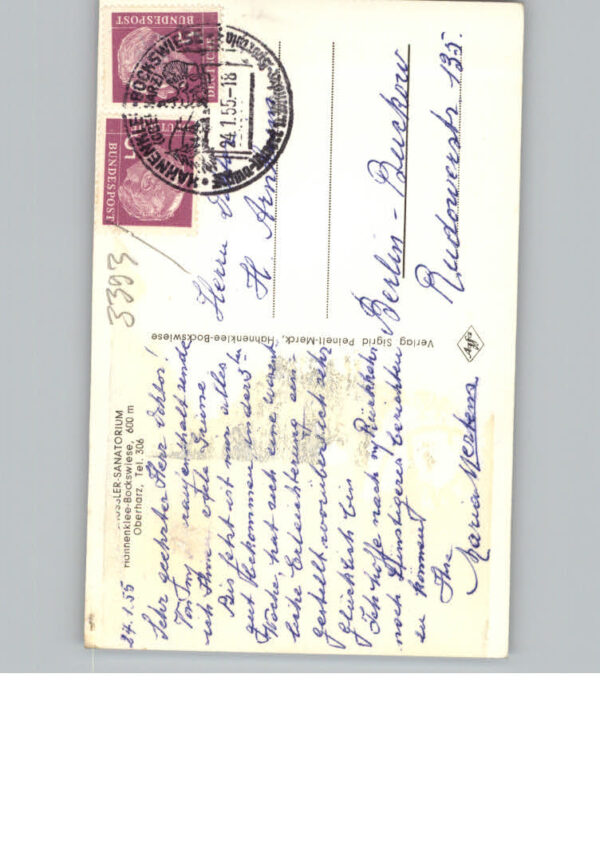 BUNDESPOST
BUNDESPOST
HAHNENKLEE-BOCKSWIESE
24.1.55.-18
3393
Herrn
H.
Berlin-Buckow
Rudowerstr. 135.
Verlag Sigrid Peinelt-Merck, Hahnenklee-Bockswiese
-SANATORIUM
Hahnenklee-Bockswiese, 600 m
Oberharz, Tel. 306
24.1.55
Sehr geehrter Herr Doktor!
Von
ich Ihnen Grüsse
Bis jetzt ist mir alles
gut bekommen in der 5ten
Woche, hat sich eine
liche Erleichterung ein-
gestellt worüber ich sehr
glücklich bin
Ich hoffe nach m. Rückkehr
noch Günstigeres berichten
zu können!
Ihre
Maria Mertens